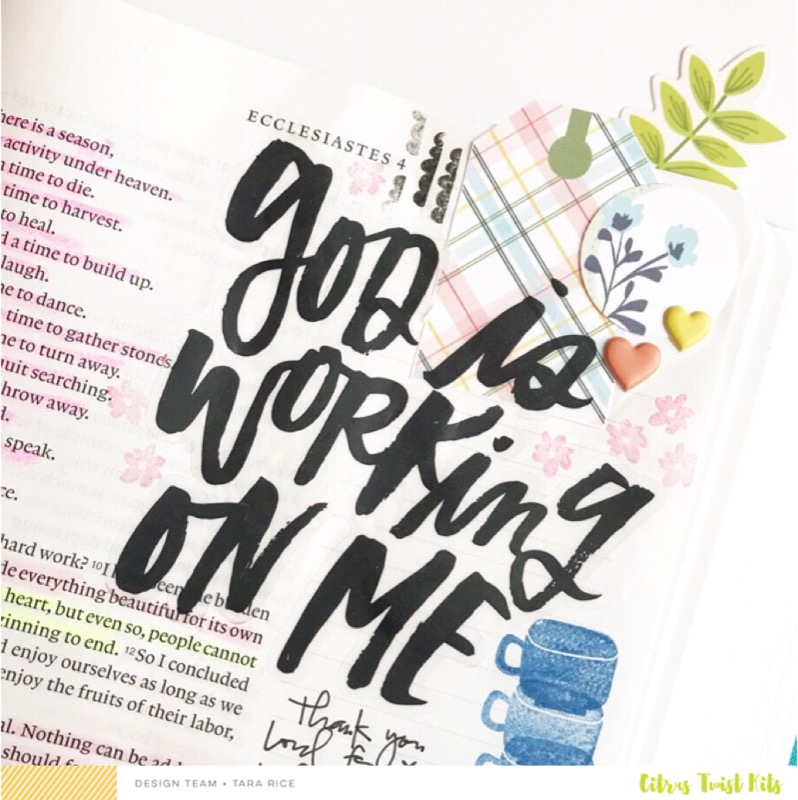 ECCLESIASTES 4
here is a season,
activity under heaven.
time to die.
time to harvest.
to heal.
d a time to build up.
laugh.
me to dance.
time to gather stones.
me to turn away.
quit searching.
throw away.
d.
speak.
ce.
god is
WORKing
ON ME
hard work? 10I
een the b den
de everything beautiful for its own
heart, but even so, people cannot
inning to end. 12So I concluded
d enjoy ourselves as long as we
enjoy the fruits of their labor,
al. Nothing can be ad
should fe
Thank you
Lord for
DESIGN TEAM • TARA RICE
Citrus Twist Kits